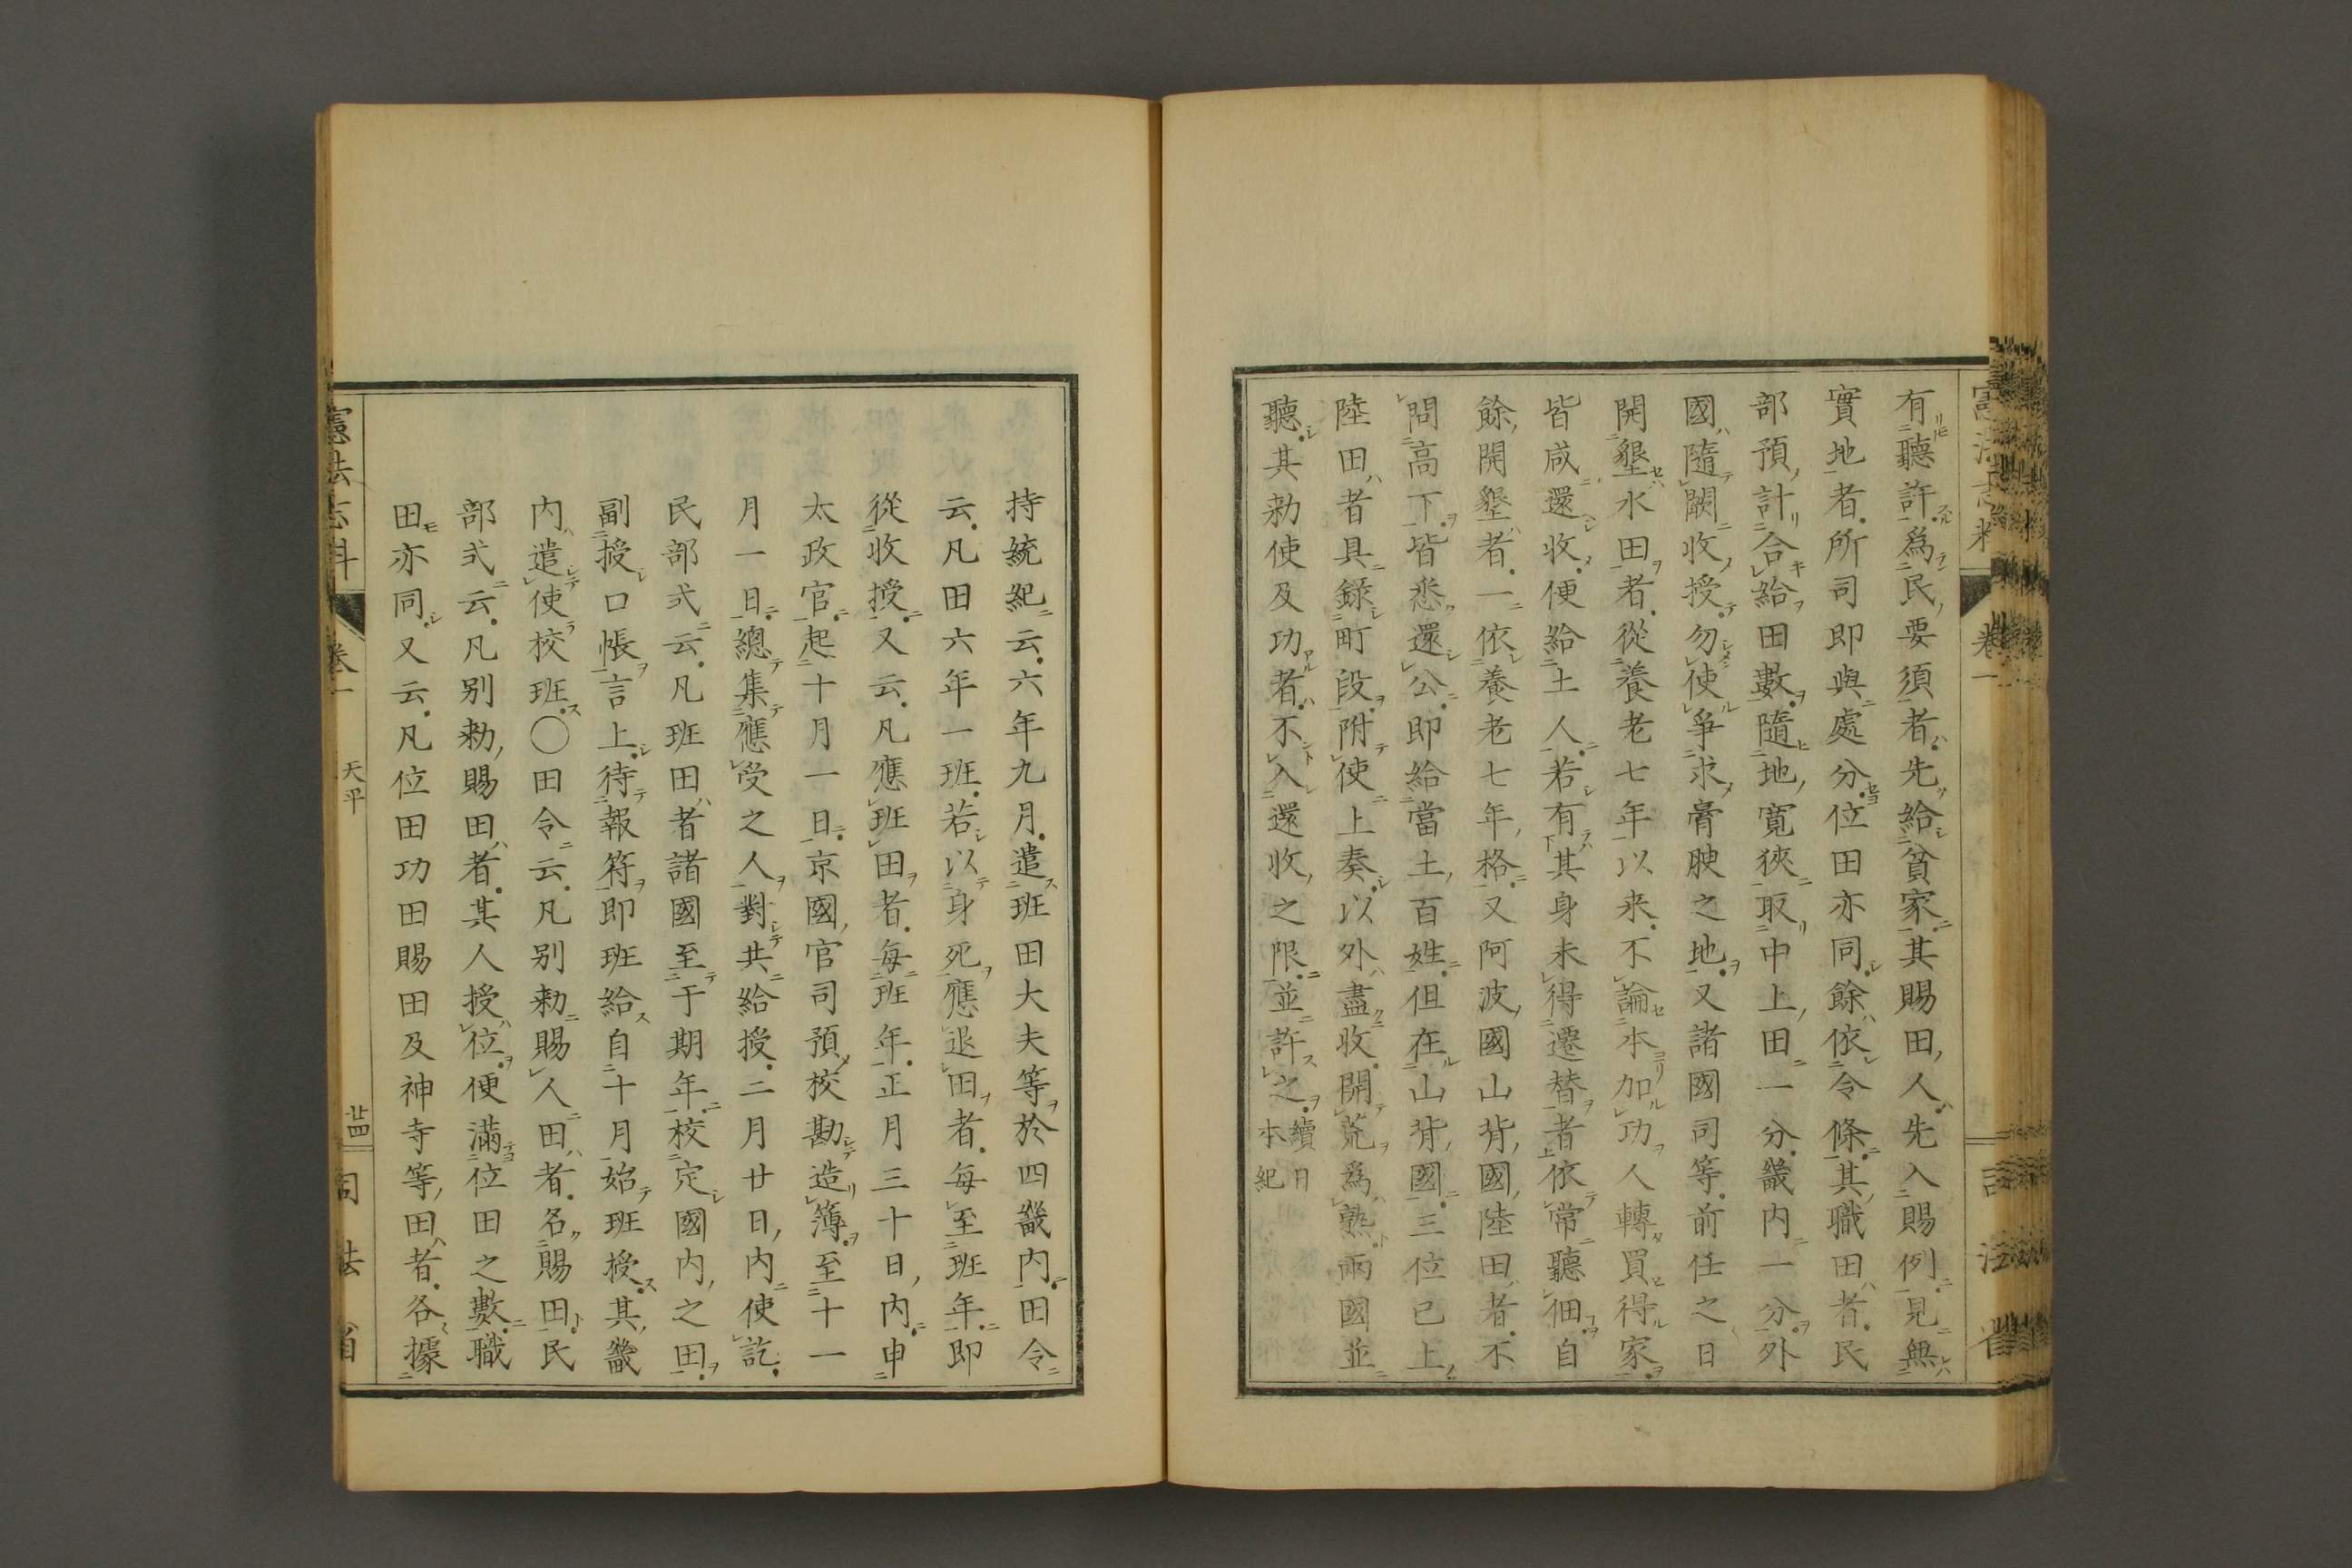 有聽許爲民要須者先給貧家其賜田人先入賜例見無
實地者所司即與處分位田亦同餘依令條其職田者民
部預計合給田數隨地寛狹取中上田一分畿内一分外
國隨闕收授勿使爭求膏腴之地又諸國司等前任之日
開墾水田者從養老七年以來不論本加功人轉買得家
皆咸還收便給土人若有其身未得遷替者依常聽佃自
餘開墾者一依養老七年格又阿波國山背國陸田者不
問高下皆悉還公即給當土百姓但在山背國三位已上
陸田者具錄町段附使上奏以外盡收開荒爲熟兩國並
聽其勅使及功者不入還收之限並許之續日本紀
持統紀云六年九月遣班田大夫等於四畿内田令
云凡田六年一班若以身死應退田者每至班年即
從收授又云凡應班田者每班年正月三十日内申
太政官起十月一日京國官司預校勘造簿至十一
月一日總集應受之人對共給授二月廿日内使訖
民部式云凡班田者諸國至于期年校定國内之田
副授口帳言上待報符即班給自十月始班授其畿
内遣使校班〇田令云凡別勅賜人田者名賜田民
部式云凡別勅賜田者其人授位便滿位田之數職
田亦同又云凡位田功田賜田及神寺等田者各據
憲法志料 卷一 天平 廿四 司法省